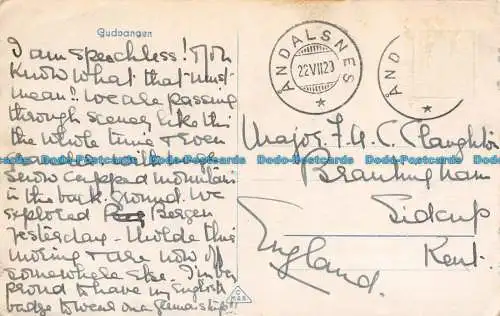 Gudvangen
I am speechless! You
know what that must
mean!! We are passing
through scenes like this
the whole time & even
with the
snow capped mountains
in the back ground. We
explored Bergen
yesterday - Molde this
morning & are now off
somewhere else. I'm very
proud to have my English
badge to wear on a
ÅNDALSNES
22 VII 29
ÅND
Major F. A. C. Claughton
Brantingham
Sidcup
Kent.
England.
Dodo-Postcards Dodo-Postcards Dodo-Postcards Dodo-Postcards